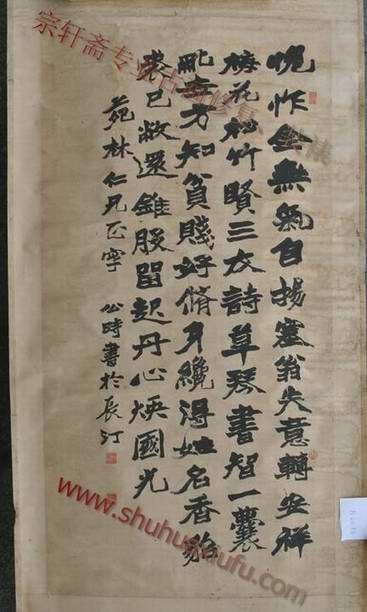 愧怍全無氣自揚塞翁失意轉安祥
梅花松竹賢三友詩草琴書智一囊
亂世方知貧賤好脩身纔得姓名香貂
裘已敝還錐股留起丹心煥國光
苑林仁兄正 公時書於長汀
宗轩斋专业古
www.shuhuaxiufu.com